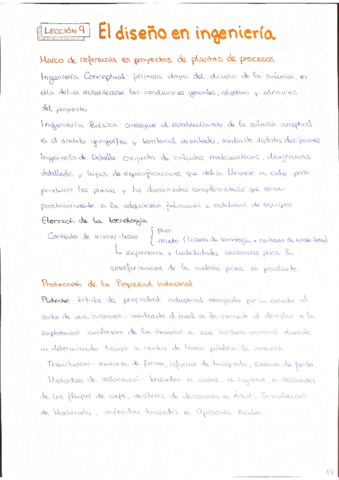 LECCIÓN 9 El diseño en ingeniería.
Marco de referencia en proyectos de plantas de procesos
Ingeniería Conceptual: primera etapa del diseño de la solución, en
ella deben establecerse las condiciones generales, objetivos y alcances
del proyecto
Ingeniería Básica: consegue el establecimiento de la solución conceptual
en el ámbito geográfico y territorial acordado, mediante distintas disciplinas
Ingeniería de Detalle: conjunto de cálculos matemáticos, diagramas
detallados y hojas de especificaciones que deben llevarse a cabo para
producir los planos y los documentos complementarios que sirvan
posteriormente a la adquisición, fabricación e instalación de equipos
Elección de la tecnología
Contrato de know-how { puro
mixto (licencia de tecnología + contrato de know-how)
↳ experiencia y habilidades necesarias para la
transformación de la materia prima en producto.
Protección de la Propiedad Industrial
Patente: título de propiedad industrial otorgado por un estado al
autor de una invención, mediante el cual se le concede el derecho a la
explotación exclusiva de la invención en ese territorio nacional durante
un determinado tiempo a cambio de hacer pública la invención.
Tramitación: examen de forma, informe de búsqueda, examen de fondo.
Métodos de valoración: basados en costes, en ingresos, en descuentos
de los flujos de caja, análisis de decisiones en Árbol, Simulación
de Montecarlo, métodos basados en Opciones Reales.